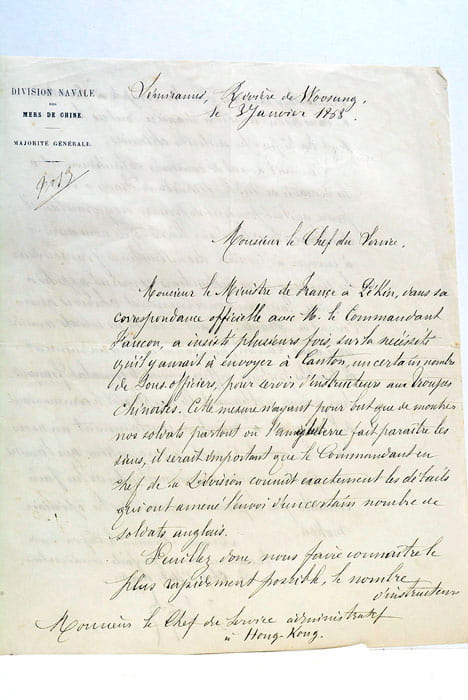 DIVISION NAVALE
DES
MERS DE CHINE.
MAJORITÉ GÉNÉRALE.
Sémiramis, Rivière de Woosung,
le 3 Janvier 1863.
Monsieur le Chef du Service,
Monsieur le Ministre de France à Pékin, dans sa
correspondance officielle avec M. le Commandant
Faucon, a insisté plusieurs fois, sur la nécessité
qu'il y aurait à envoyer à Canton, un certain nombre
de Sous officiers, pour servir d'instructeurs aux troupes
chinoises. Cette mesure n'ayant pour but que de montrer
nos soldats partout où l'angleterre fait paraître les
siens, il serait important que le Commandant en
chef de la Division connût exactement les détails
qui ont amené l'envoi d'un certain nombre de
soldats anglais.
Veuillez donc, nous faire connaître le
plus rapidement possible, le nombre
d'instructeurs
Monsieur le Chef de Service administratif
à Hong-Kong.